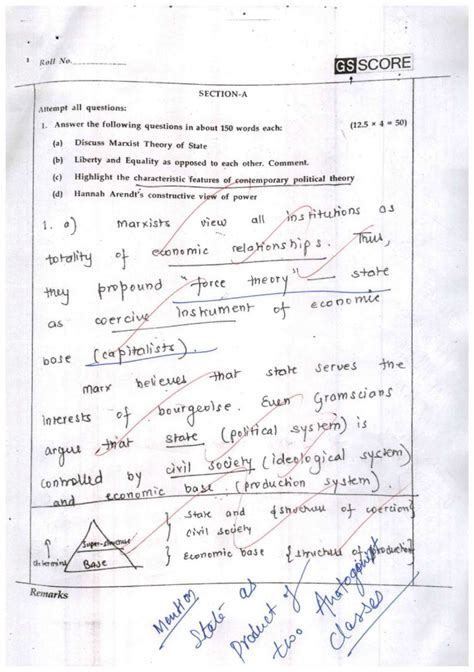 Roll No.
GSSCORE
SECTION-A
Attempt all questions:
1. Answer the following questions in about 150 words each: (12.5 × 4 = 50)
(a) Discuss Marxist Theory of State
(b) Liberty and Equality as opposed to each other. Comment.
(c) Highlight the characteristic features of contemporary political theory
(d) Hannah Arendt's constructive view of power
1. a) Marxists view all institutions as
totality of economic relationships. Thus,
they propound "force theory" – state
as coercive instrument of economic
base (capitalists).
Marx believes that state serves the
interests of bourgeoise. Even Gramscians
argue that state (political system) is
controlled by civil society (ideological system)
and economic base (production system).
State and civil society } {structure of coercion}
Super-structure
Economic base } {structure of production}
Base
determines
Remarks
Mention
State as
Product of
two Antagonist
classes